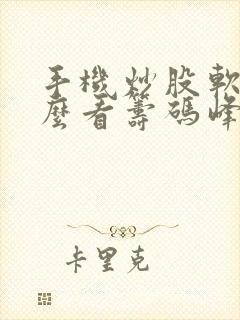 手機炒股軟
麼看籌碼峰
卡里克